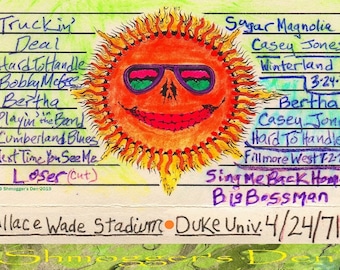 Truckin'
Deal
Hard To Handle
Bobby McGee
Bertha
Playin' in the Band
Cumberland Blues
Last Time You See Me
Loser (cut)
© Shmogger's Den 2013
Sugar Magnolia
Casey Jones
Winterland
3-24-
Bertha
Casey Jon
Hard To Handle
Fillmore West 7-2-
Sing Me Back Home
Big Bossman
llace Wade Stadium • Duke Univ. 4/24/71
Shmogger's Den